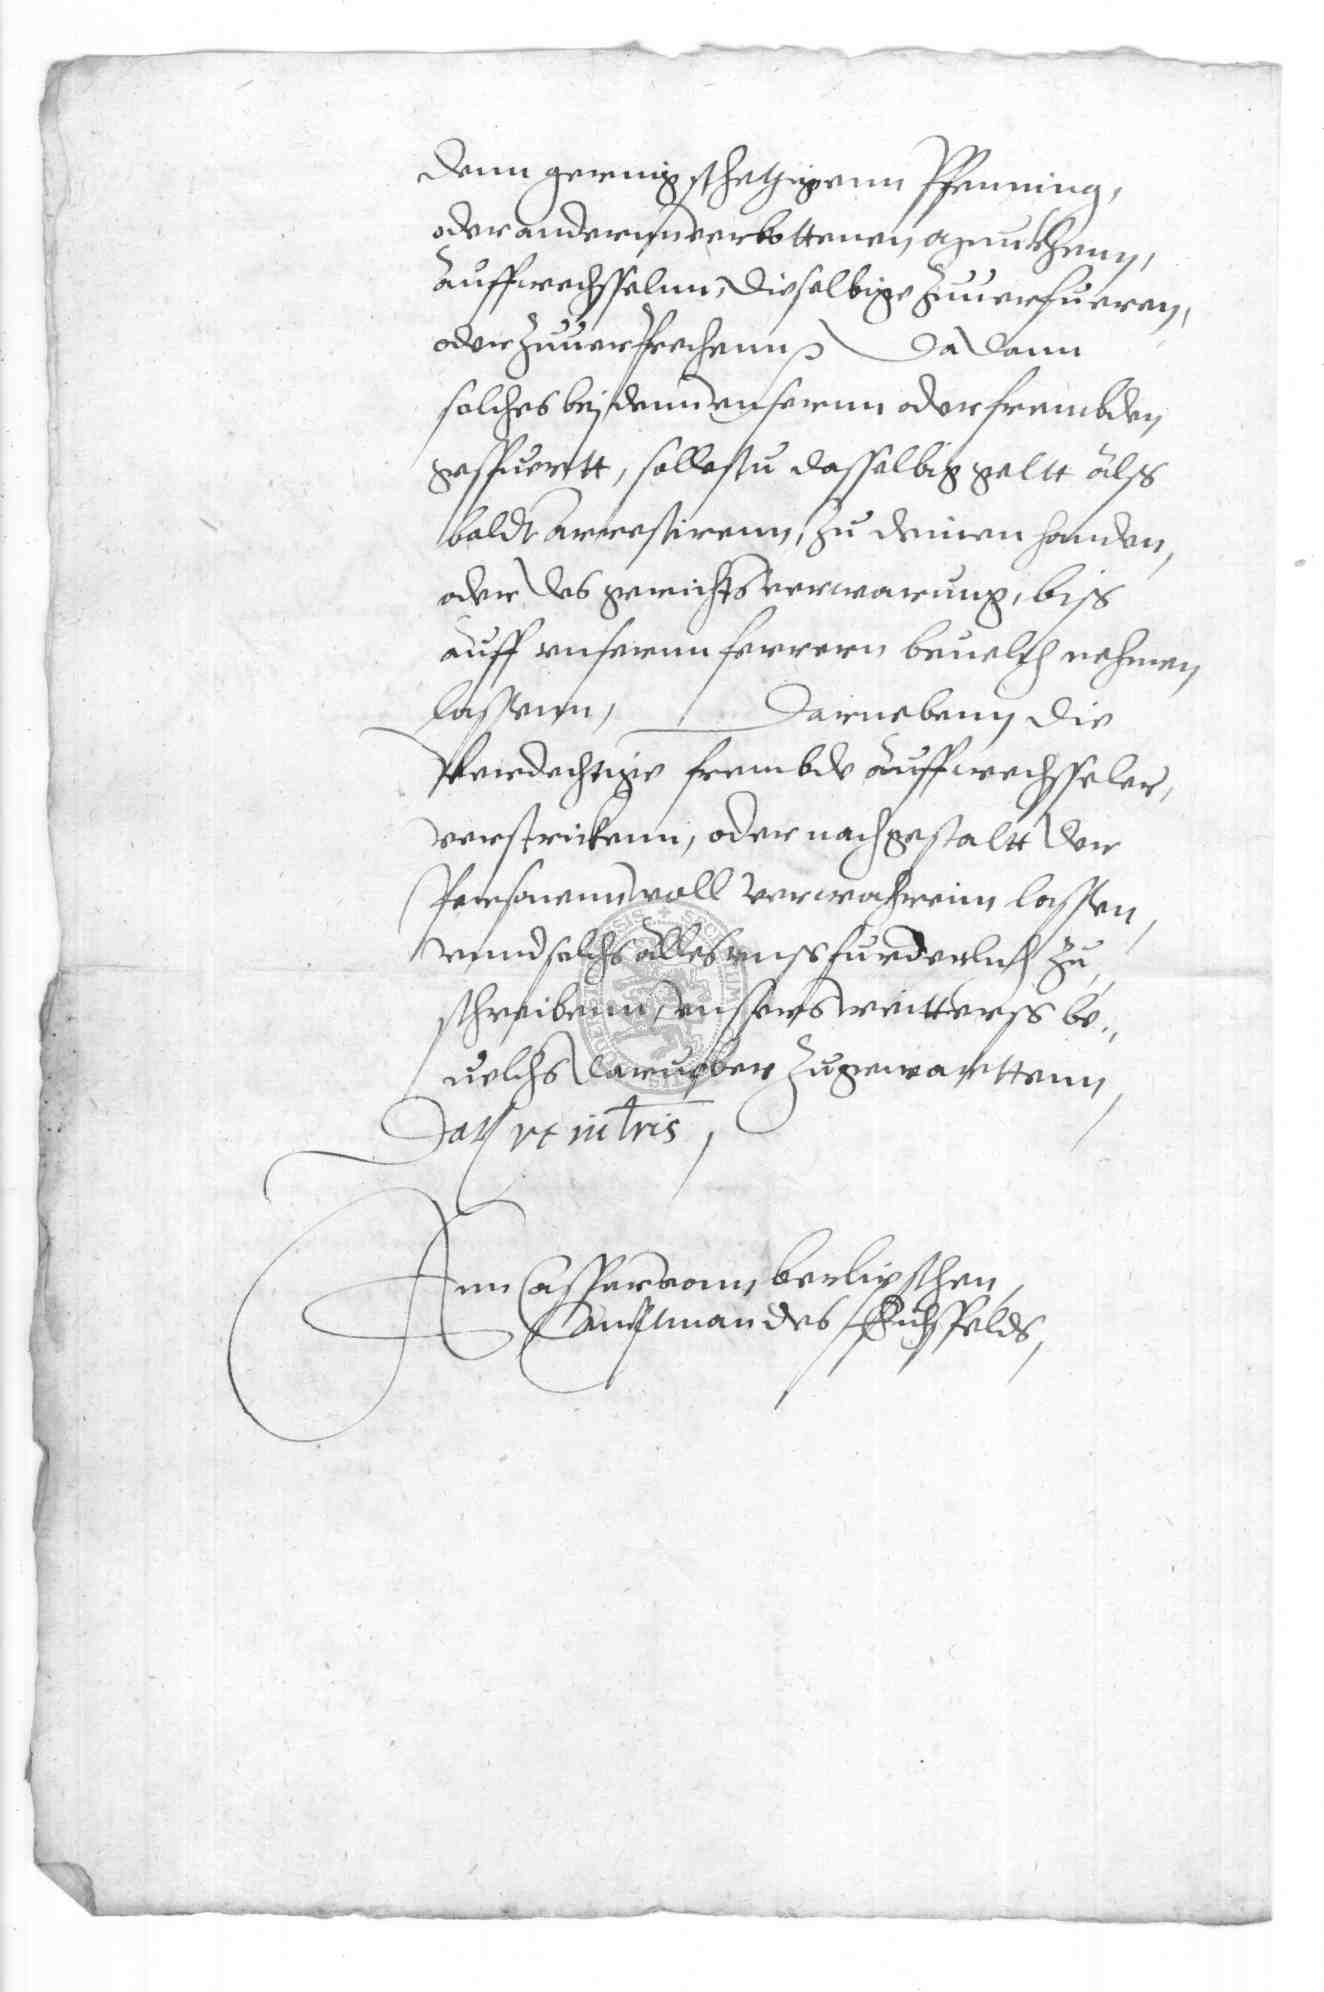 denn gering schetzigenn Pfenning,
oder andern verbottenen muntzenn,
auffwechsselnn, dieselbige zuuerfueren,
oder zuuersprechenn, Da dann
solches bej denn vnsernn oder frembden
gespuertt, sollestu dasselbig geltt alss
baldt arrestirenn, zu deinen handen,
oder des gerichts verwarung, biss
auff vnsernn ferrern beuelch nehmen
lassenn, Darnebenn die
Verdechtige frembde auffwechsseler,
verstrickenn, oder nach gestaltt der
Personenn woll verwahrenn lassen,
vnnd solchs alles vnss furderlich zu
schreibenn, vnsers weitterss be„
uelchs daruber zugewarttenn,
Dat vt in lris,
Ann Casparvonn berlipschen,
Amptman des Eichsfelds,